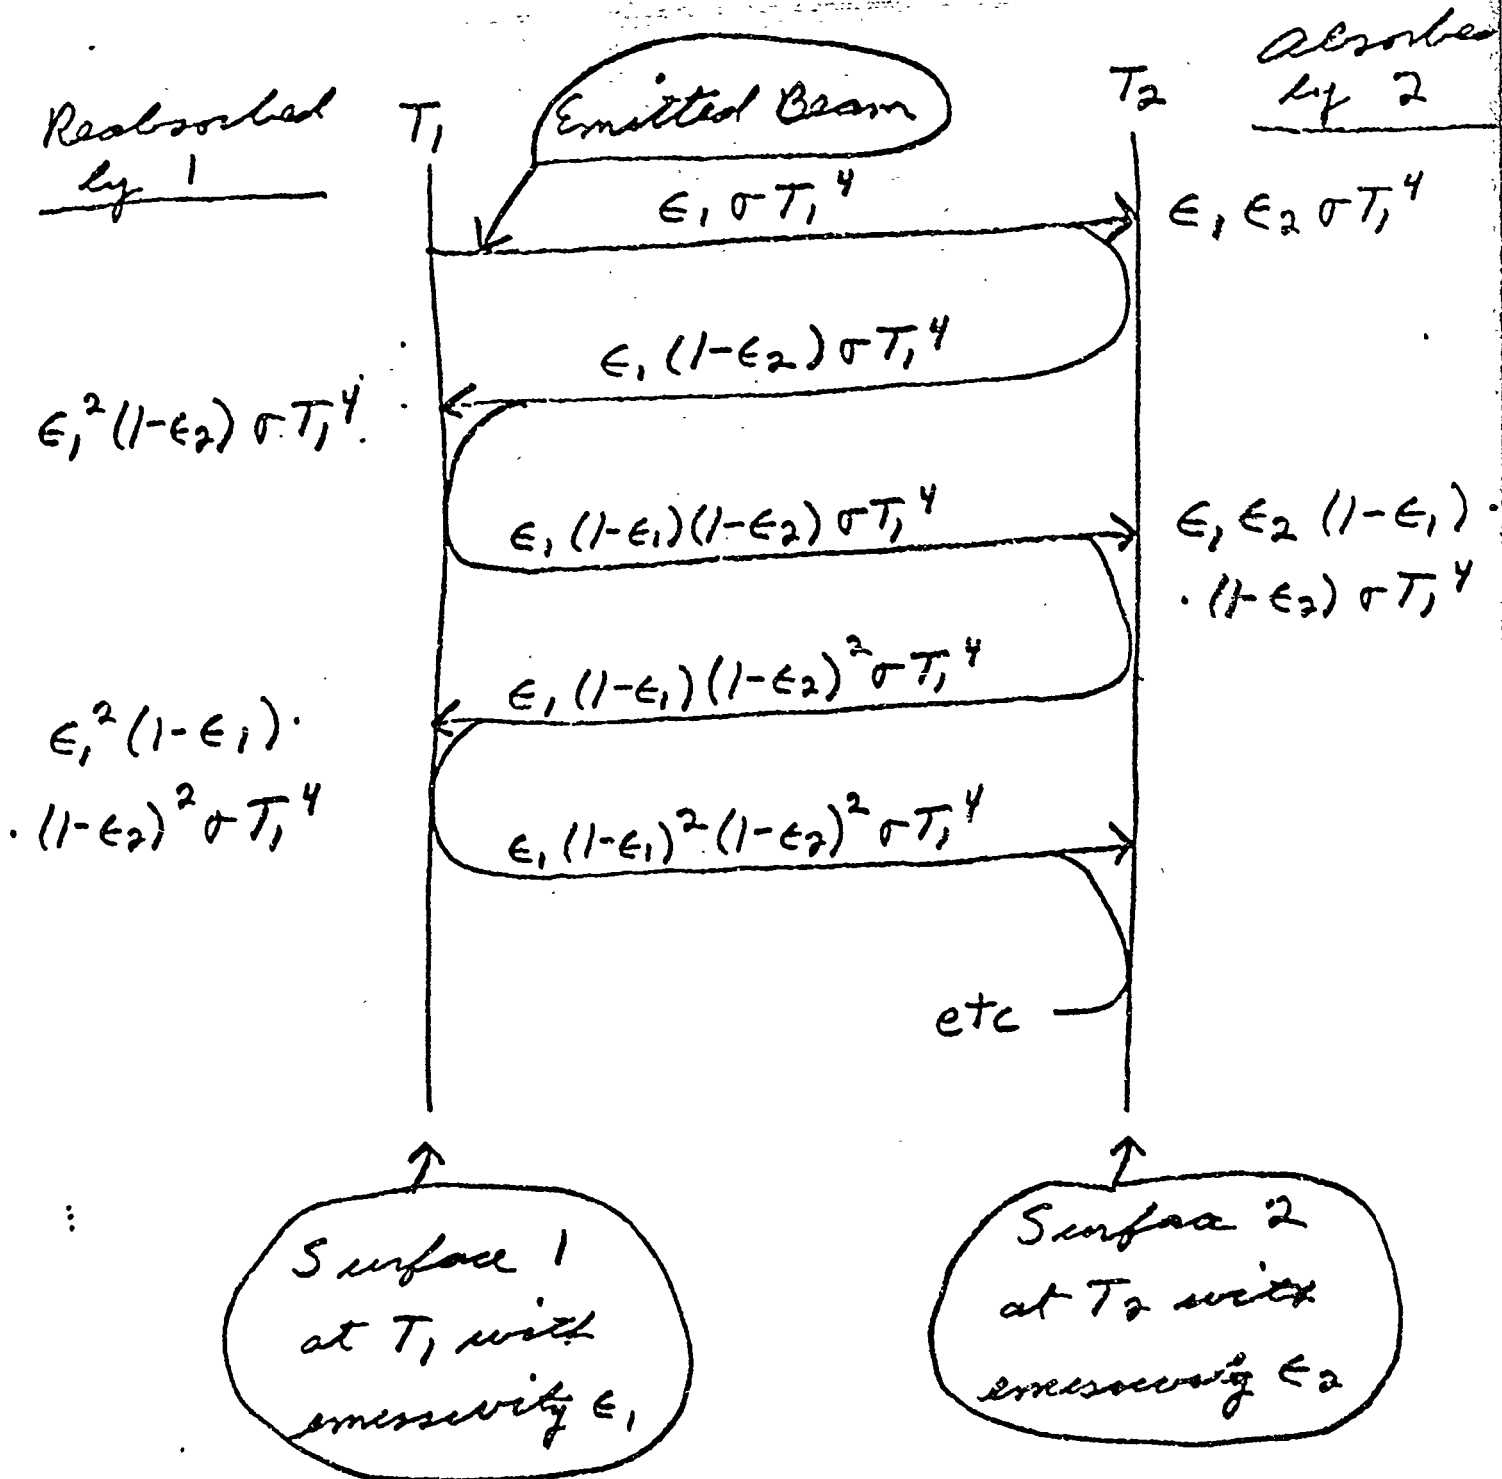 Reabsorbed
by 1
T₁
Emitted Beam
T₂
Absorbed
by 2
ϵ₁ σ T₁⁴
ϵ₁ ϵ₂ σ T₁⁴
ϵ₁ (1-ϵ₂) σ T₁⁴
ϵ₁² (1-ϵ₂) σ T₁⁴
ϵ₁ (1-ϵ₁)(1-ϵ₂) σ T₁⁴
ϵ₁ ϵ₂ (1-ϵ₁) ·
· (1-ϵ₂) σ T₁⁴
ϵ₁ (1-ϵ₁) (1-ϵ₂)² σ T₁⁴
ϵ₁² (1-ϵ₁) ·
· (1-ϵ₂)² σ T₁⁴
ϵ₁ (1-ϵ₁)² (1-ϵ₂)² σ T₁⁴
etc
Surface 1
at T₁ with
emissivity ϵ₁
Surface 2
at T₂ with
emissivity ϵ₂